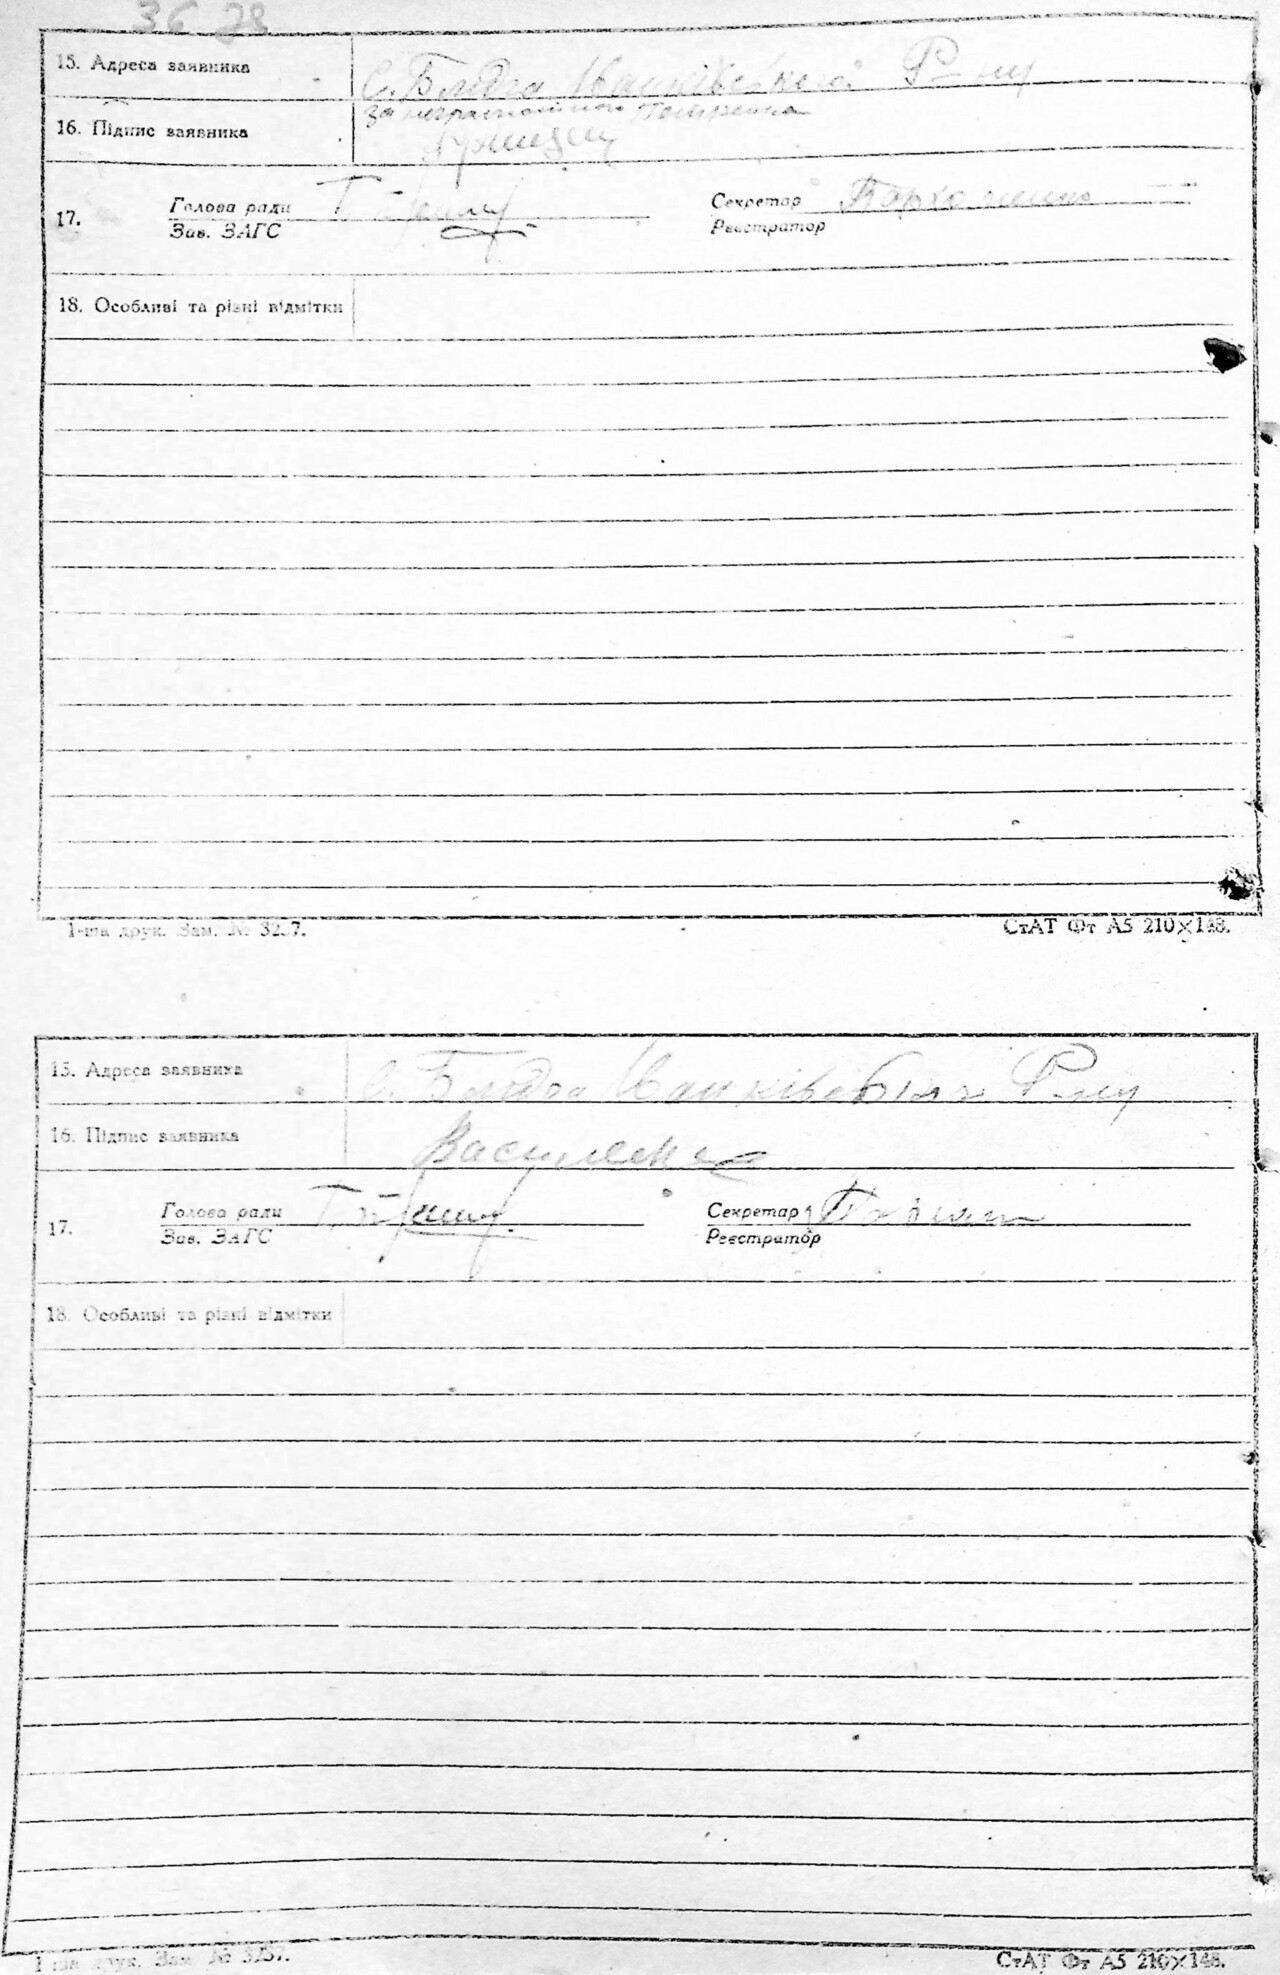 36 28
15. Адреса заявника С. Блідча Іванківського Р-ну
за неграмотного Петренка
16. Підпис заявника
17. Голова ради Секретар Пархоменко
Зав. ЗАГС Реєстратор
18. Особливі та різні відмітки
1-ша друк. Зам. № 3257. СтАТ Фт А5 210×148.
15. Адреса заявника С. Блідча Іванківського Р-ну
16. Підпис заявника Василенко
17. Голова ради Секретар
Зав. ЗАГС Реєстратор
18. Особливі та різні відмітки
1-ша друк. Зам. № 3257. СтАТ Фт А5 210×148.